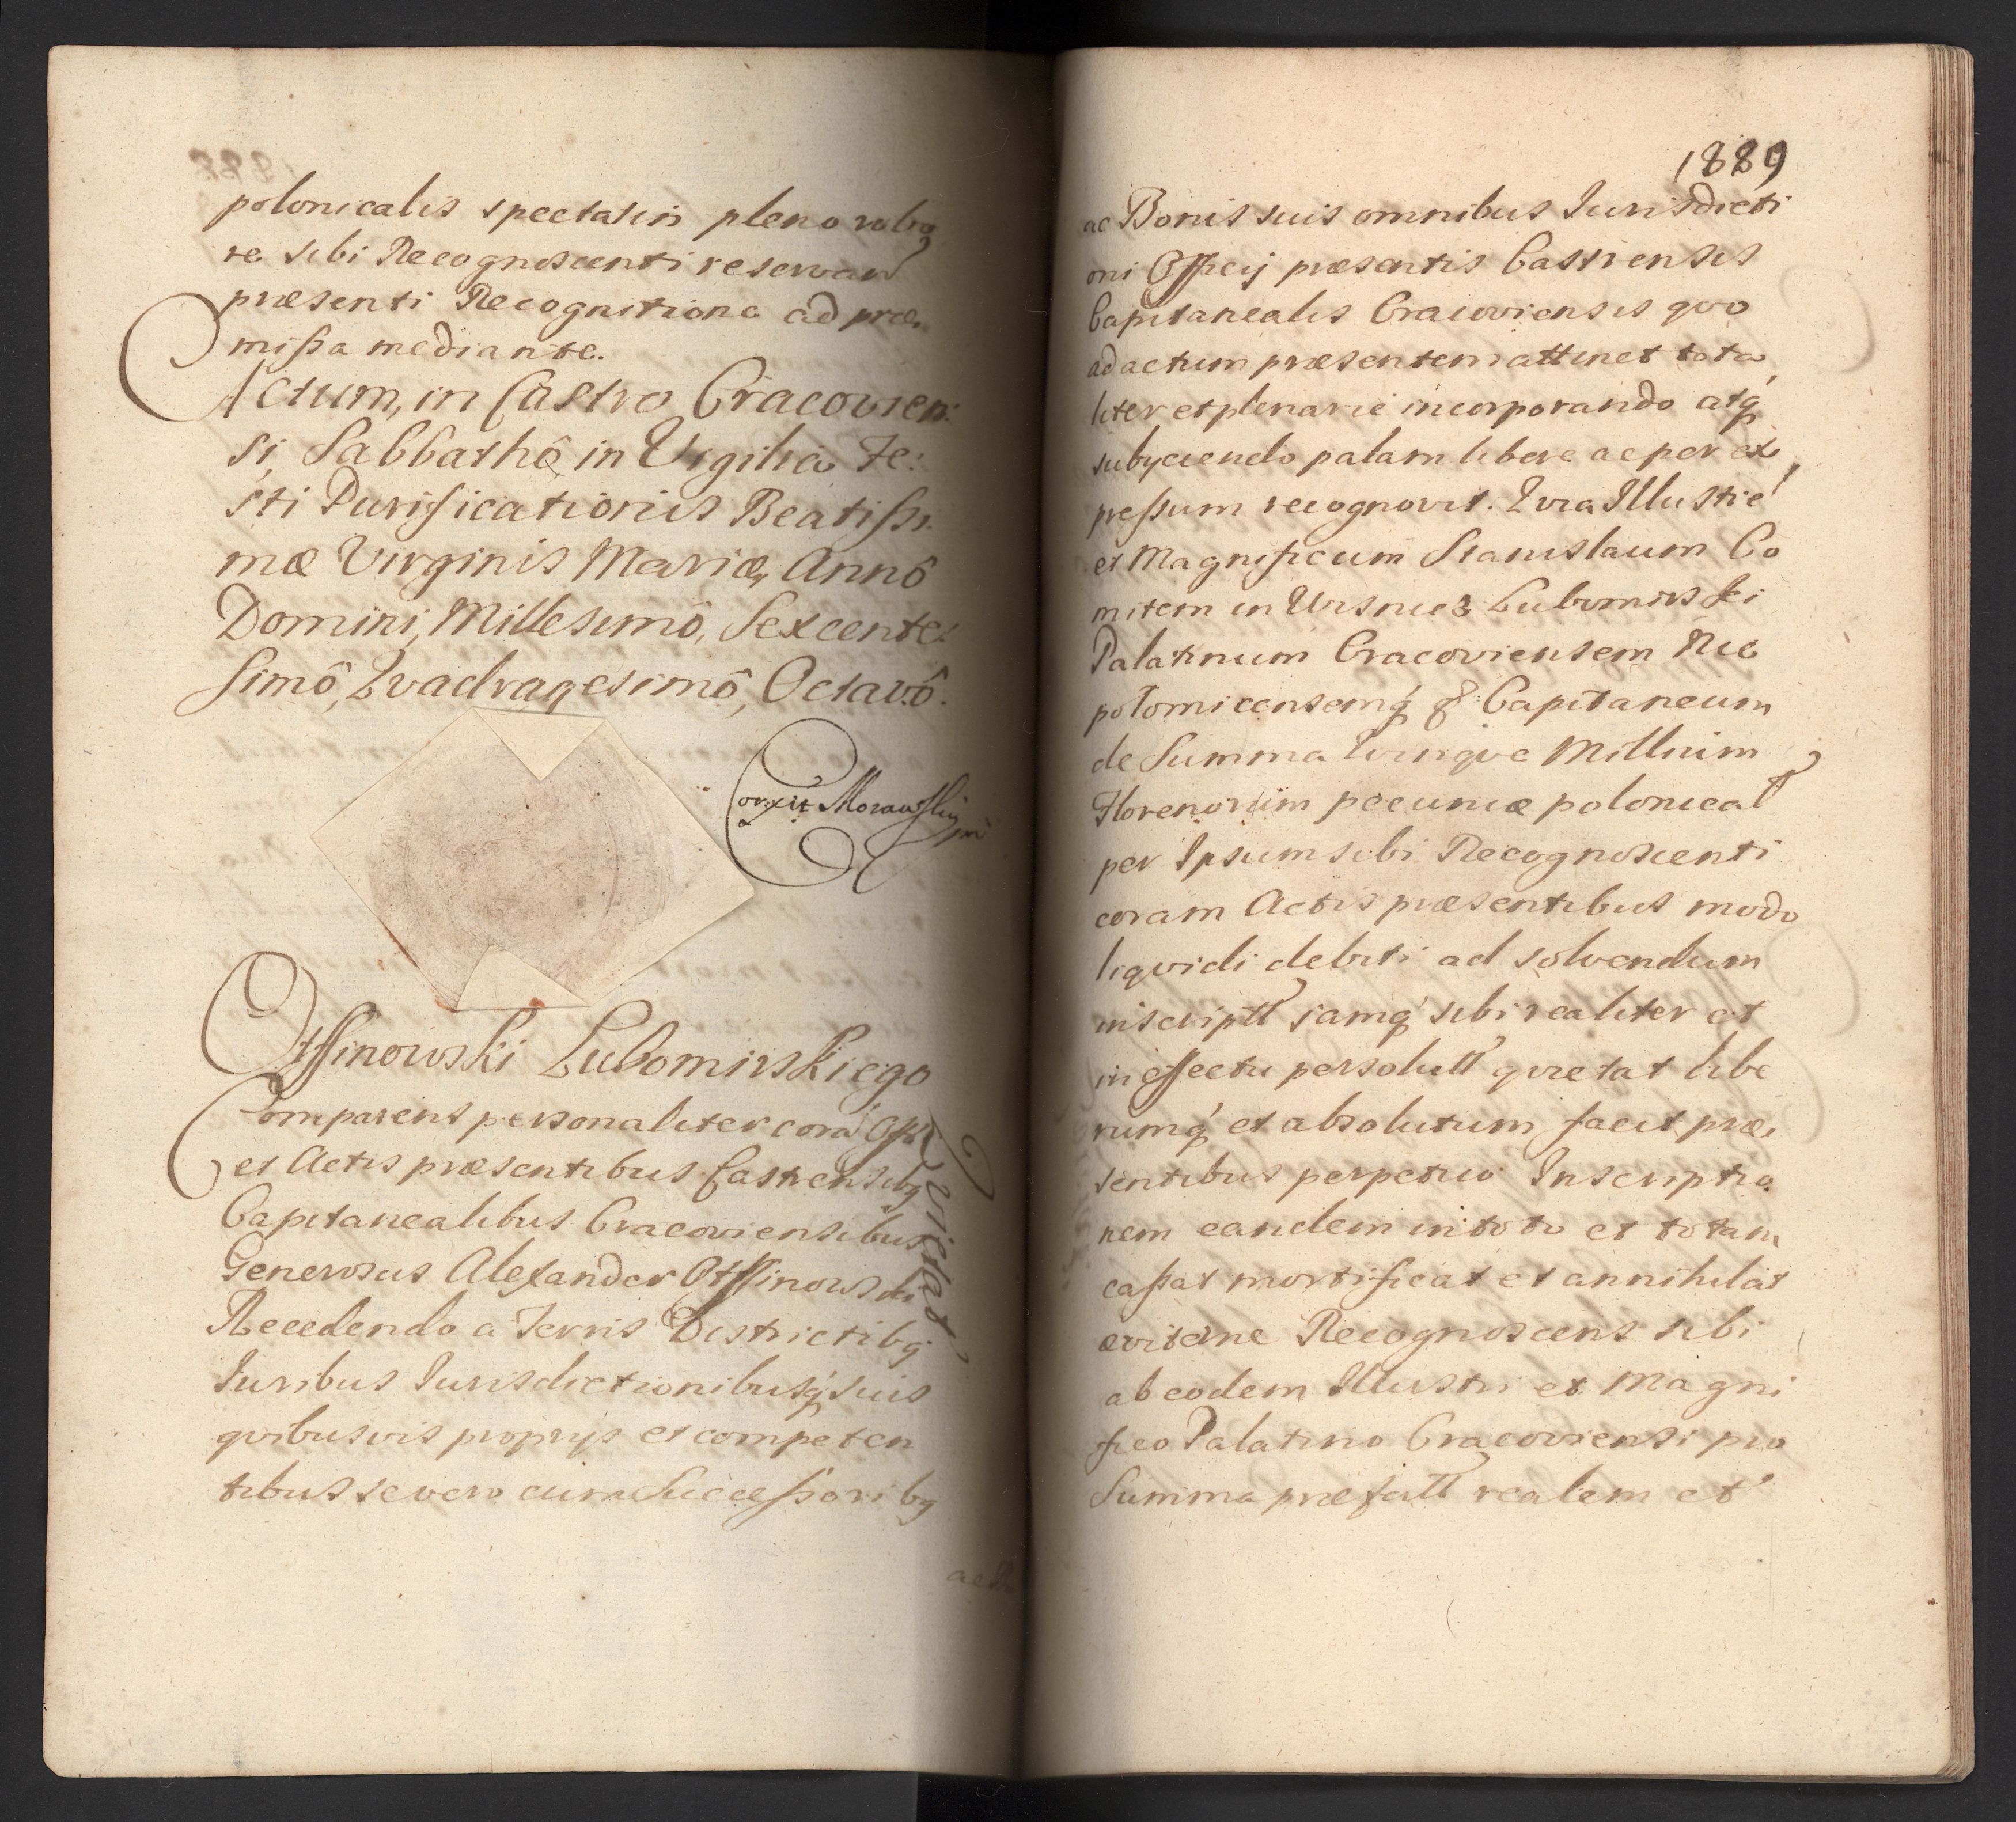 polonicalis spectatin pleno robo
re sibi Recognoscenti reservan
præsenti Recognitione ad præ
missa mediante.
Actum, in Castro Cracovien:
si, Sabbathô in Vigilia Fe:
sti Purificationis Beatissi
mæ Virginis Mariæ, Annô
Domini, Millesimô, Sexcente:
simô, Qvadragesimô, Octavô.
Corexit Morawski mp
Otffinowski Lubomirskiego
Qvietat
Comparens personaliter corã Offi
et Actis præsentibus Castrensibq
Capitanealibus Cracoviensibus
Generosus Alexander Otffinowski
Recedendo a Terris Districtibq
Iuribus Iurisdictionibusq́ suis
qvibusvis proprijs et competen
tibus se vero cum Successoribq
ac Bo
1889
ac Bonis suis omnibus Iurisdicti
oni Officij præsentis Castrensis
Capitanealis Cracoviensis qvo
ad actum præsentem attinet tota
liter et plenarie incorporando atq́
subyciendo palam libere ac per ex
pressum recognovit. Qvia Illustré
et Magnificum Stanislaum Co
mitem in Wisnicz Lubomirski
Palatinum Cracoviensem Nie
polomicensemq́ & Capitaneum
de Summa Qvinqve Millium
Florenorum pecuniæ polonical
per Ipsum sibi Recognoscenti
coram Actis præsentibus modo
liqvidi debiti ad solvendum
inscriptt jamq́ sibi realiter et
in effectu persolutt qvietat libe
rumq́ et absolutum facit præ
sentibus perpetuo Inscriptio
nem eandem in toto et totam
cassat mortificat et annihilat
æviterne Recognoscens sibi
ab eodem Illustri et Magni
fico Palatino Cracoviensi pro
Summa præfatt realem et